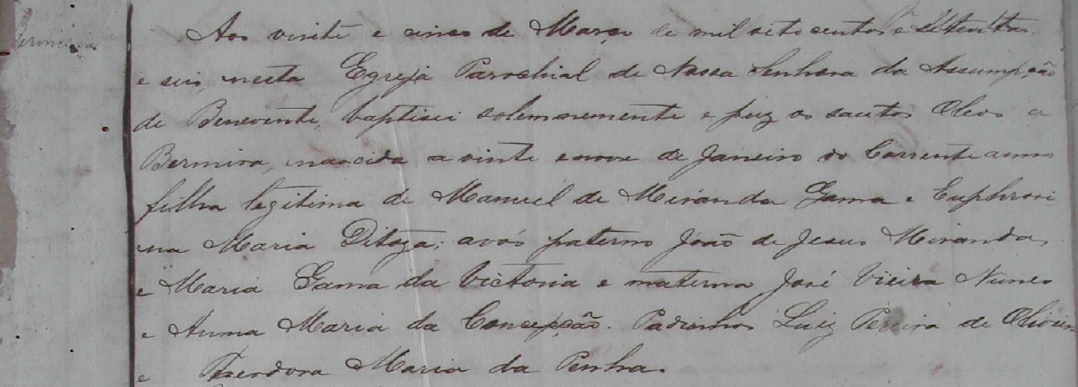 Aos vinte e cinco de Março de mil oito centos e setenta
e seis nesta Egreja Parochial de Nossa Senhora da Assumpção
de Benevente, baptisei solemnemente e puz os santos Oleos a
Bermira, nascida a vinte e nove de Janeiro do Corrente anno
filha legitima de Manuel de Miranda Gama e Euphrosi
na Maria Ditoza; avós paterno João de Jesus Miranda,
e Maria Gama da Victoria e materna José Vieira Nunes
e Anna Maria da Concepção. Padinhos Luiz Pereira de Oliveira
e Theodora Maria da Penha.